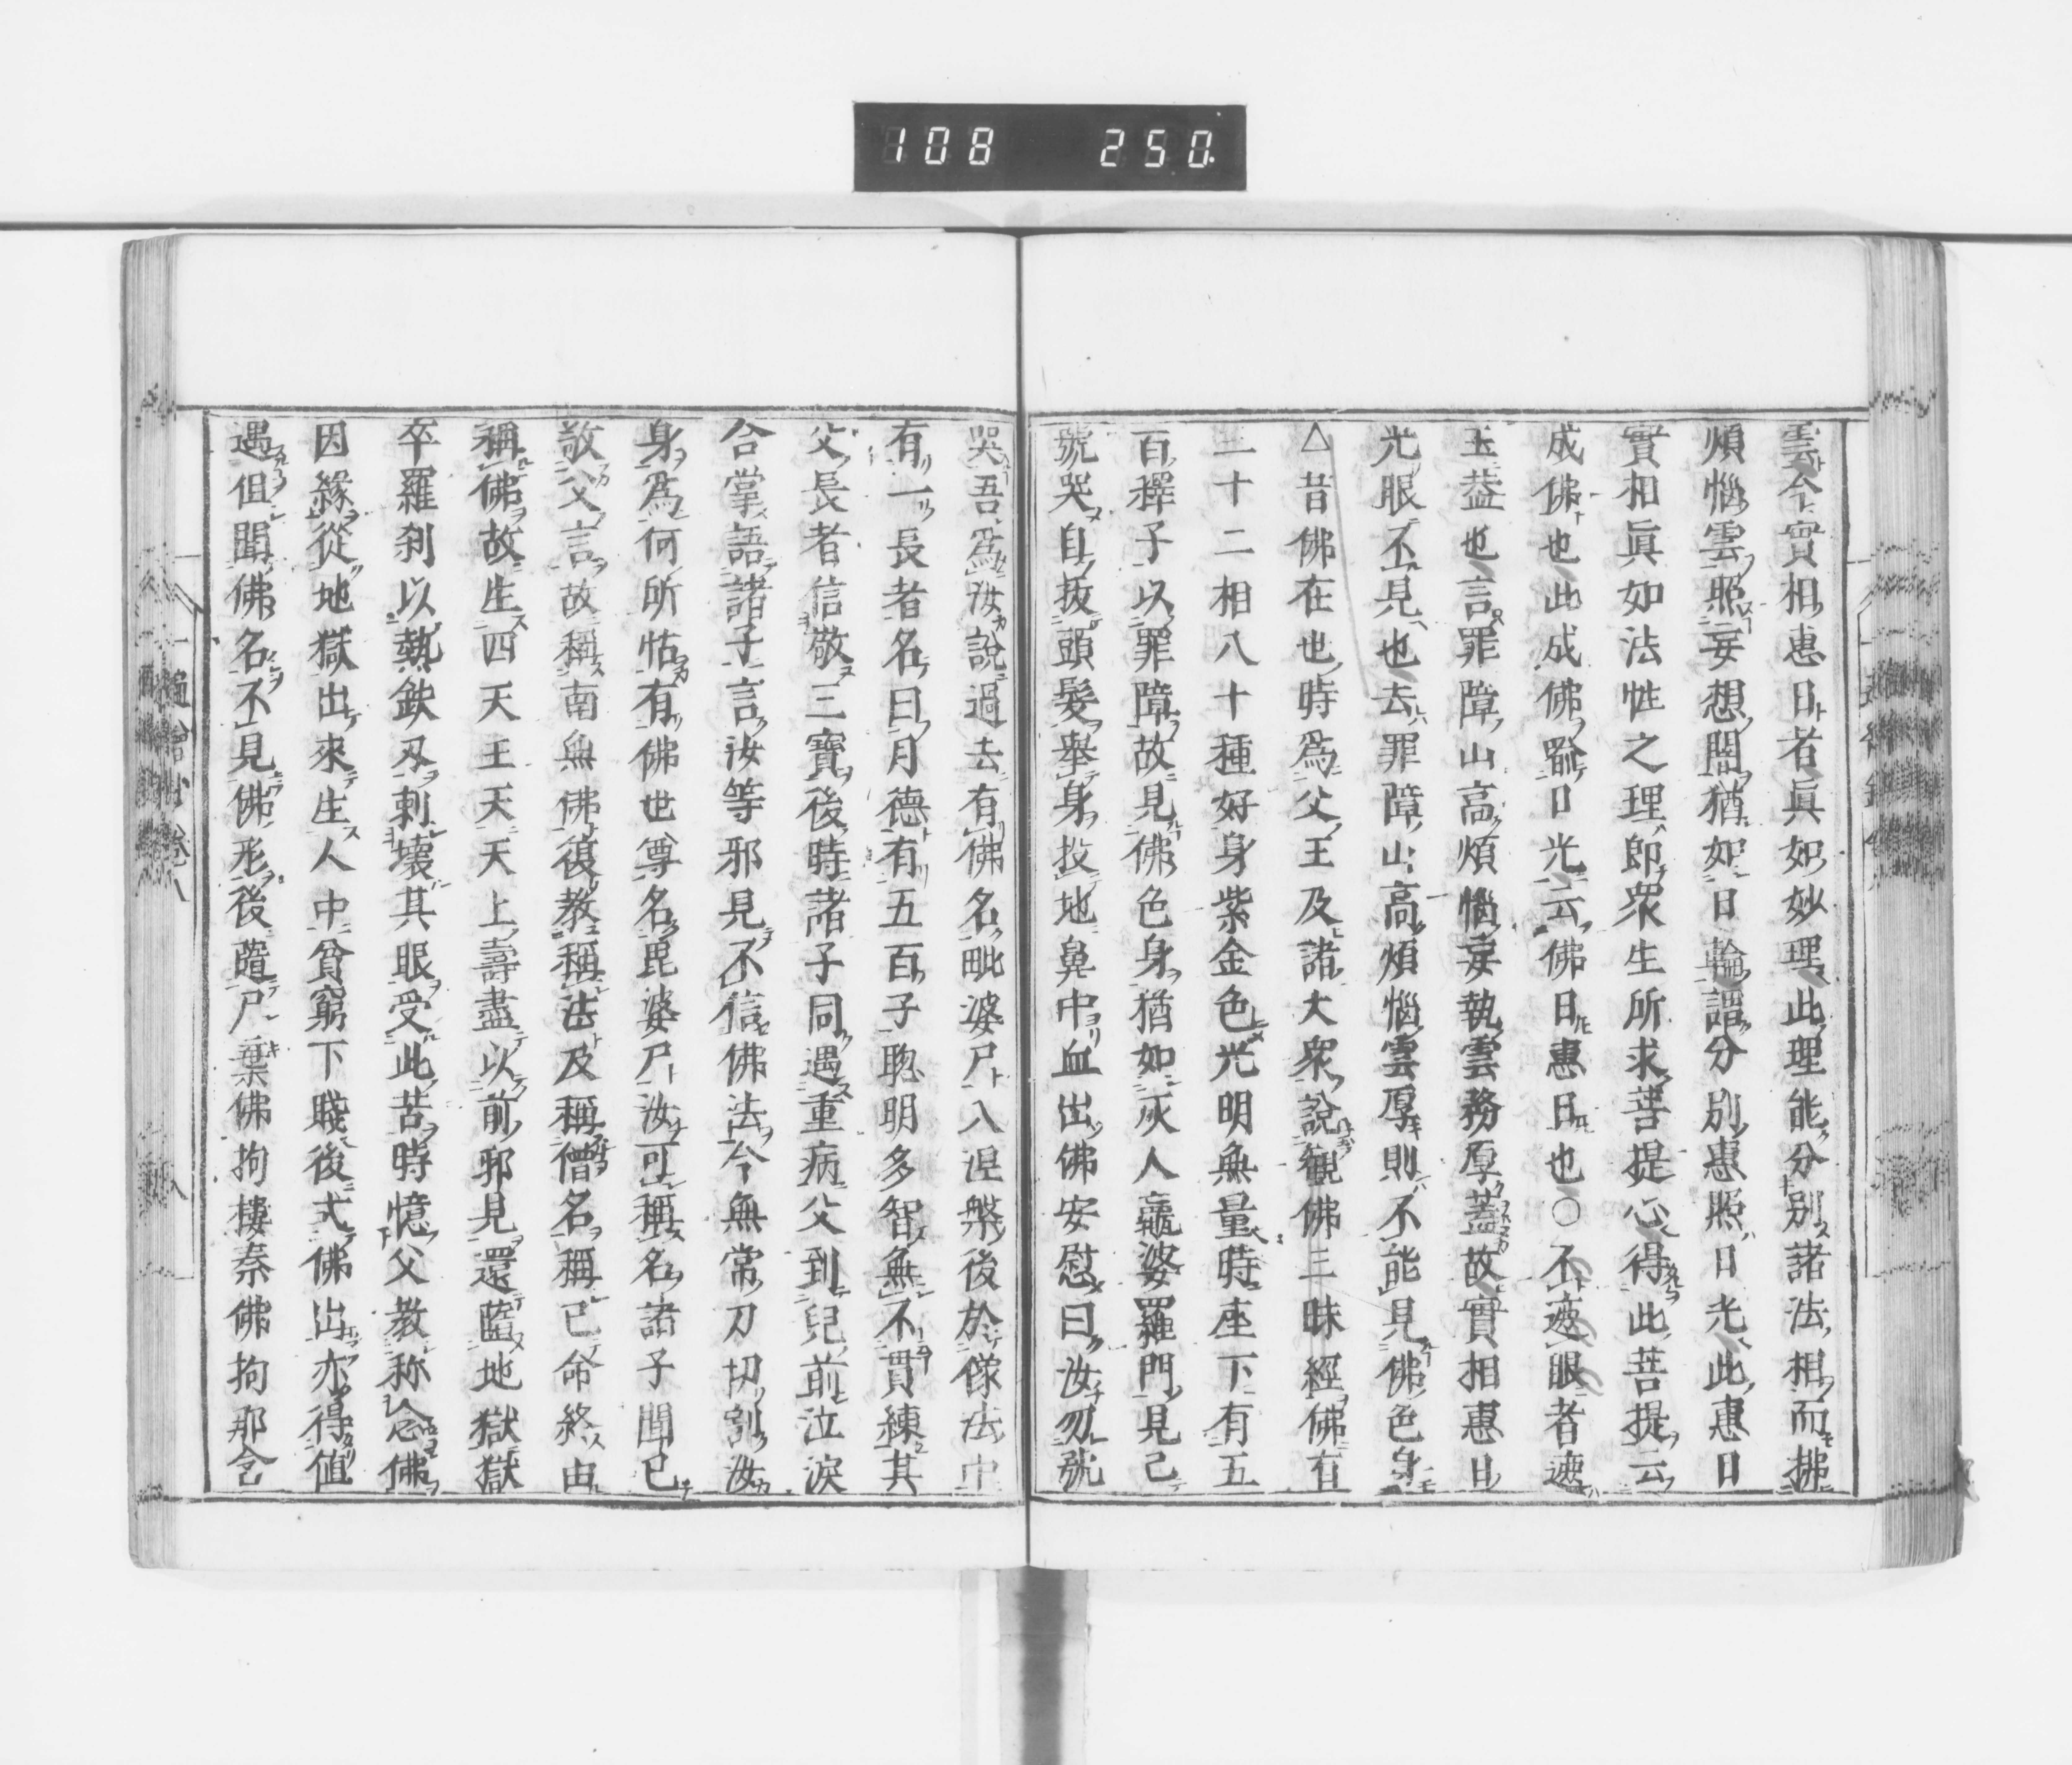 108 250
雲今實相惠日者眞如妙理此理能分別諸法相而拂
煩惱雲照妄想闇猶如日輪謂分別惠照日光此惠日
實相眞如法性之理即衆生所求菩提心得此菩提云
成佛也此成佛喩日光云佛日惠日也○不遮眼者遮
玉葢也言罪障山高煩惱妄執雲務厚蓋故實相惠日
光眼不見也去罪障山高煩惱雲厚則不能見佛色身
△昔佛在也時爲父王及諸大衆說觀佛三昧經佛有
三十二相八十種好身紫金色光明無量時座下有五
百釋子以罪障故見佛色身猶如灰人羸婆羅門見己
號哭自拔頭髮舉身投地鼻中血出佛安慰曰汝勿號
哭吾爲汝說過去有佛名毗婆尸入涅槃後於像法中
有一長者名曰月德有五百子聰明多智無不貫練其
父長者信敬三寶後時諸子同遇重病父到兒前泣淚
合掌語諸子言汝等邪見不信佛法今無常刀切割汝
身爲何所怙有佛世尊名毘婆尸汝可稱名諸子聞已
敬父言故稱南無佛復教稱法及稱僧名稱已命終由
稱佛故生四天王天天上壽盡以前邪見還墮地獄獄
卒羅刹以熱鈇刄刺壞其眼受此苦時憶父教称念佛
因緣從地獄出來生人中貧窮下賤後式佛出亦得値
遇但聞佛名不見佛形後隨尸棄佛拘樓秦佛拘那含